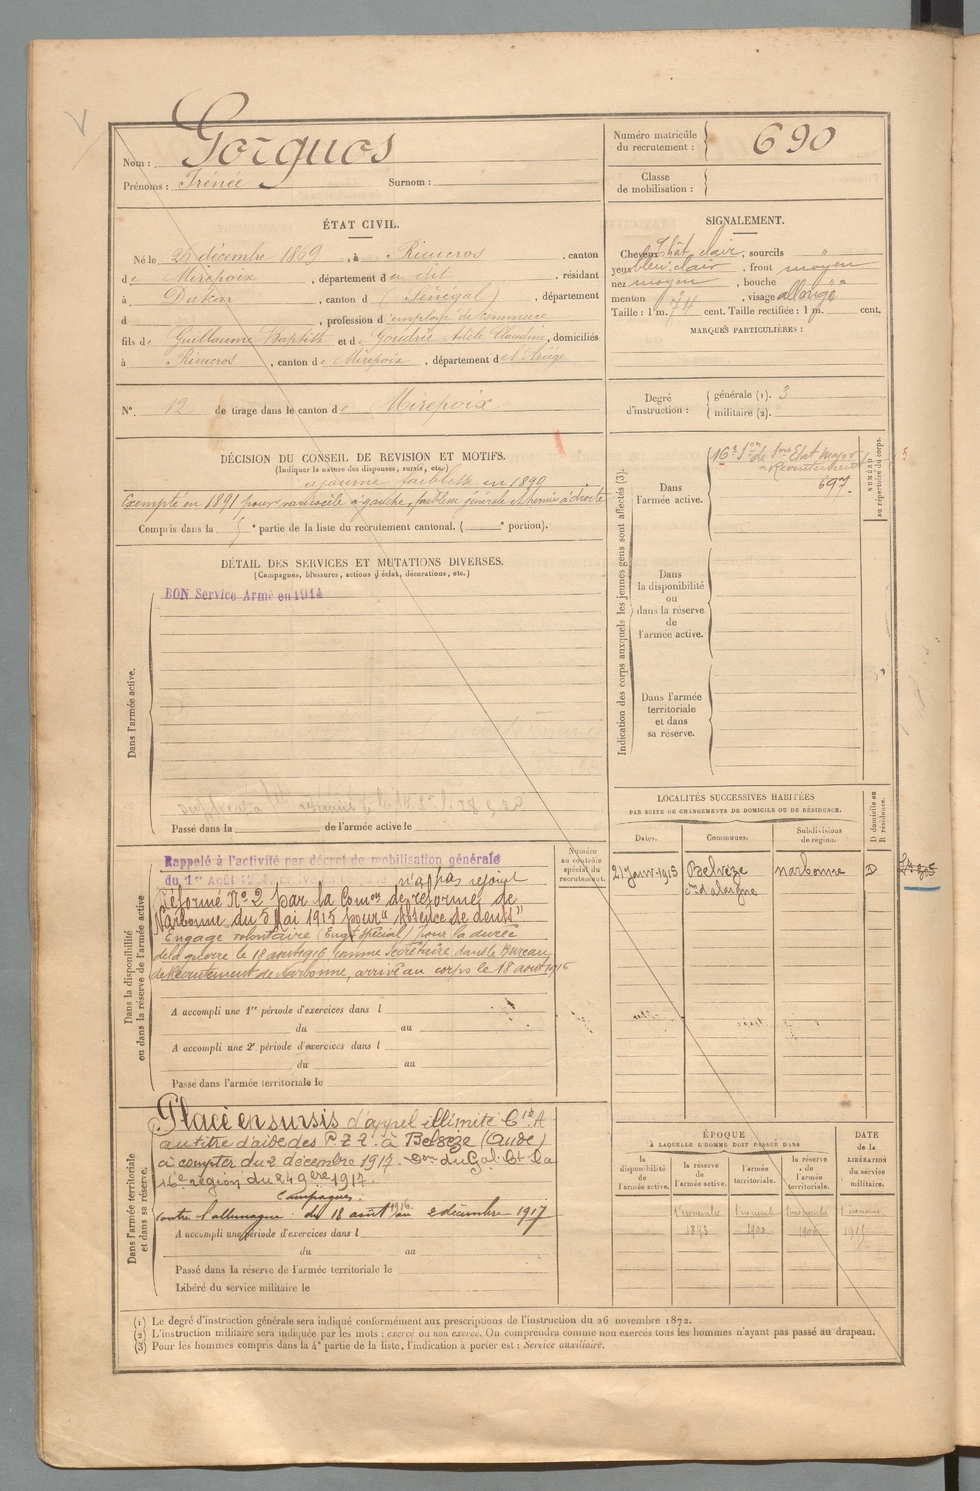 Nom : Gorguos
Prénoms : Irénée Surnom :
Numéro matricule du recrutement : 690
Classe de mobilisation :
ÉTAT CIVIL.
Né le 26 décembre 1869, à Rieucros, canton
de Mirepoix, département du dit, résidant
à Dakar, canton d (Sénégal), département
d , profession d'employé de commerce
fils de Guillaume Baptiste et de Goudrie Adèle Claudine, domiciliés
à Rieucros, canton de Mirepoix, département de l'Ariège
N° 12 de tirage dans le canton de Mirepoix
SIGNALEMENT.
Cheveux chât clair, sourcils "
yeux bleu clair, front moyen
nez moyen, bouche "
menton , visage allongé
Taille : 1 m. 74 cent. Taille rectifiée : 1 m. cent.
MARQUES PARTICULIÈRES :
Degré d'instruction : générale (1). 3
militaire (2).
DÉCISION DU CONSEIL DE REVISION ET MOTIFS.
(Indiquer la nature des dispenses, sursis, etc.)
ajourné faiblesse en 1890
Exempté en 1891 pour varicocèle à gauche, faiblesse générale et hernie à droite
Compris dans la e partie de la liste du recrutement cantonal. ( e portion).
DÉTAIL DES SERVICES ET MUTATIONS DIVERSES.
(Campagnes, blessures, actions d'éclat, décorations, etc.)
Dans l'armée active.
BON Service Armé en 1914
Passé dans la de l'armée active le
Indication des corps auxquels les jeunes gens sont affectés (3).
NUMÉRO au répertoire du corps.
Dans l'armée active.
16e Son de Etat Major
Recrutement
697
Dans la disponibilité ou dans la réserve de l'armée active.
Dans l'armée territoriale et dans sa réserve.
LOCALITÉS SUCCESSIVES HABITÉES
PAR SUITE DE CHANGEMENTS DE DOMICILE OU DE RÉSIDENCE.
D domicile ou R résidence.
Dates. Communes. Subdivisions de région.
21 janv. 1915 Belvèze Narbonne D
con d'alaigne
Dans la disponibilité ou dans la réserve de l'armée active
Numéro au contrôle spécial du recrutement.
Rappelé à l'activité par décret de mobilisation générale
du 1er Août n'a pas rejoint
Réformé N° 2 par la Comon de réforme de
Narbonne du 5 Mai 1915 pour "Absence de dents"
Engagé volontaire (Engt spécial) pour la durée
de la guerre le 18 août 1916, comme Secrétaire dans le Bureau
de Recrutement de Narbonne, arrivé au corps le 18 août 1916
A accompli une 1re période d'exercices dans l
du au
A accompli une 2e période d'exercices dans l
du au
Passé dans l'armée territoriale le
Dans l'armée territoriale et dans sa réserve.
Placé en sursis d'appel illimité Cie A
au titre d'aide des P.T.T. à Belvèze (Aude)
à compter du 2 décembre 1917. Don du Gal Ct la
16e région du 24 9bre 1917.
Campagnes :
Contre l'allemagne : du 18 août 1916 au 2 décembre 1917
A accompli une période d'exercices dans l
du au
Passé dans la réserve de l'armée territoriale le
Libéré du service militaire le
ÉPOQUE
À LAQUELLE L'HOMME DOIT PASSER DANS
DATE de la LIBÉRATION du service militaire.
la disponibilité de l'armée active. la réserve de l'armée active. l'armée territoriale. la réserve de l'armée territoriale.
1er novembre
1893 1900 1906 1915
(1) Le degré d'instruction générale sera indiqué conformément aux prescriptions de l'instruction du 26 novembre 1872.
(2) L'instruction militaire sera indiquée par les mots : exercé ou non exercé. On comprendra comme non exercés tous les hommes n'ayant pas passé au drapeau.
(3) Pour les hommes compris dans la 4e partie de la liste, l'indication à porter est : Service auxiliaire.